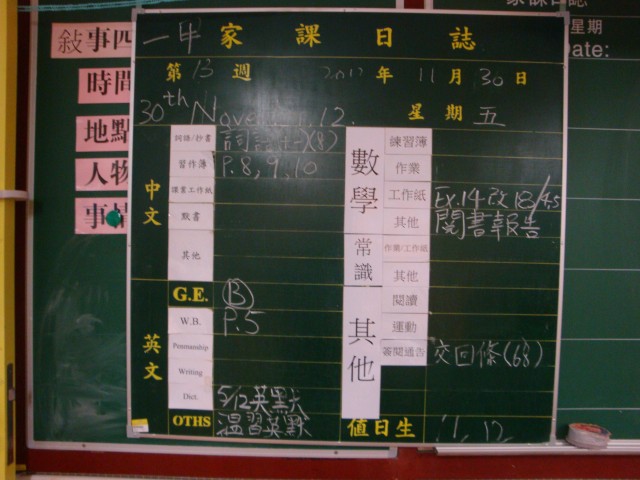 敍事四
時間
地點
人物
事情
家課日誌
星期
Date:
一甲 家課日誌
第 13 週 2012 年 11 月 30 日
30th November, 12. 星期 五
中文
詞語/抄書
習作簿 P.8, 9, 10
課業工作紙
默書
其他
G.E. B
英文
W.B. P.5
Penmanship
Writing
Dict. 5/12英默
OTHS 溫習英默
數學
練習簿
作業
工作紙 Ex.14改 18/45
其他 閱書報告
常識
作業/工作紙
其他
其他
閱讀
運動
簽閱通告 交回條(68)
值日生 11, 12,